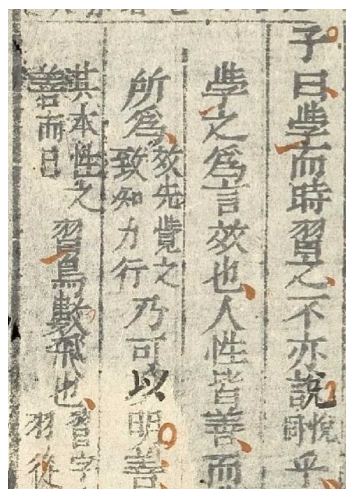 子曰學而時習之不亦說悅同乎
學之爲言效也人性皆善而
所爲效先覺之致知力行乃可以明善
其本性之善而已習鳥數飛也習字羽從